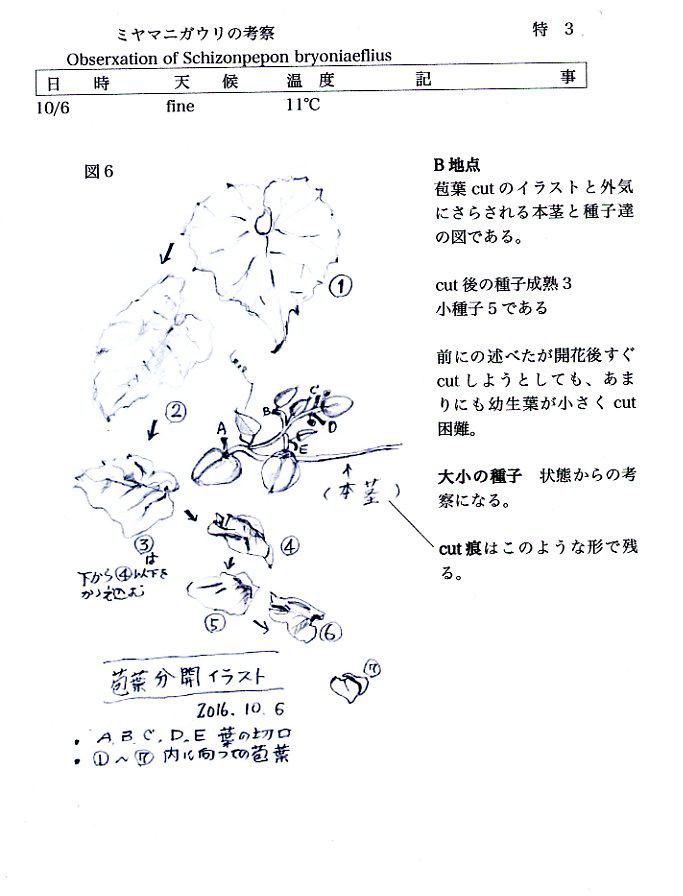 ミヤマニガウリの考察
特 3
Obserxation of Schizonpepon bryoniaeflius
日 時 天 候 温 度 記 事
10/6 fine 11℃
図6
B 地点
苞葉 cut のイラストと外気
にさらされる本茎と種子達
の図である。
cut 後の種子成熟 3
小種子 5 である
前にの述べたが開花後すぐ
cut しようとしても、あま
りにも幼生葉が小さく cut
困難。
大小の種子 状態からの考
察になる。
cut 痕はこのような形で残
る。
①
②
A
B
C
D
E
(本茎)
③
は
下から④以下を
かゝえ込む
④
⑤
⑥
⑦
苞葉分開イラスト
2016.10.6
・A.B.C.D.E 葉の切口
・①～⑦ 内に向っての苞葉